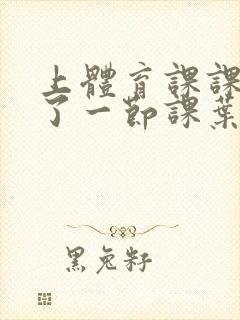 上體育課課
了一節課葉
黑兔籽